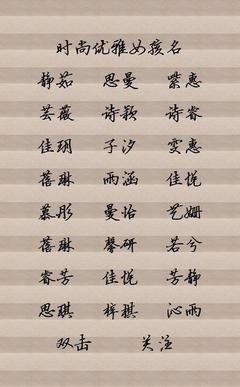 时尚优雅女孩名
静茹 思曼 紫惠
芸薇 诗颖 诗睿
佳玥 子汐 雯惠
蓓琳 雨涵 佳悦
慕彤 曼怡 艺姗
蓓琳 馨研 若兮
睿芳 佳悦 芳静
思琪 梓棋 沁雨
双击 关注